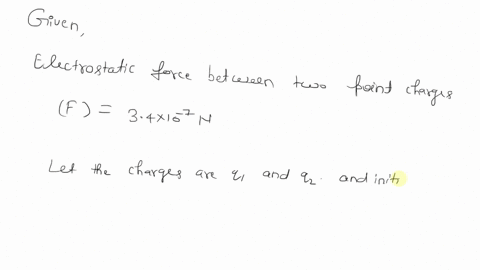 Given,
Electrostatic force between two point charges
(F) = 3.4×10⁻⁷ N
Let the charges are q₁ and q₂. and init